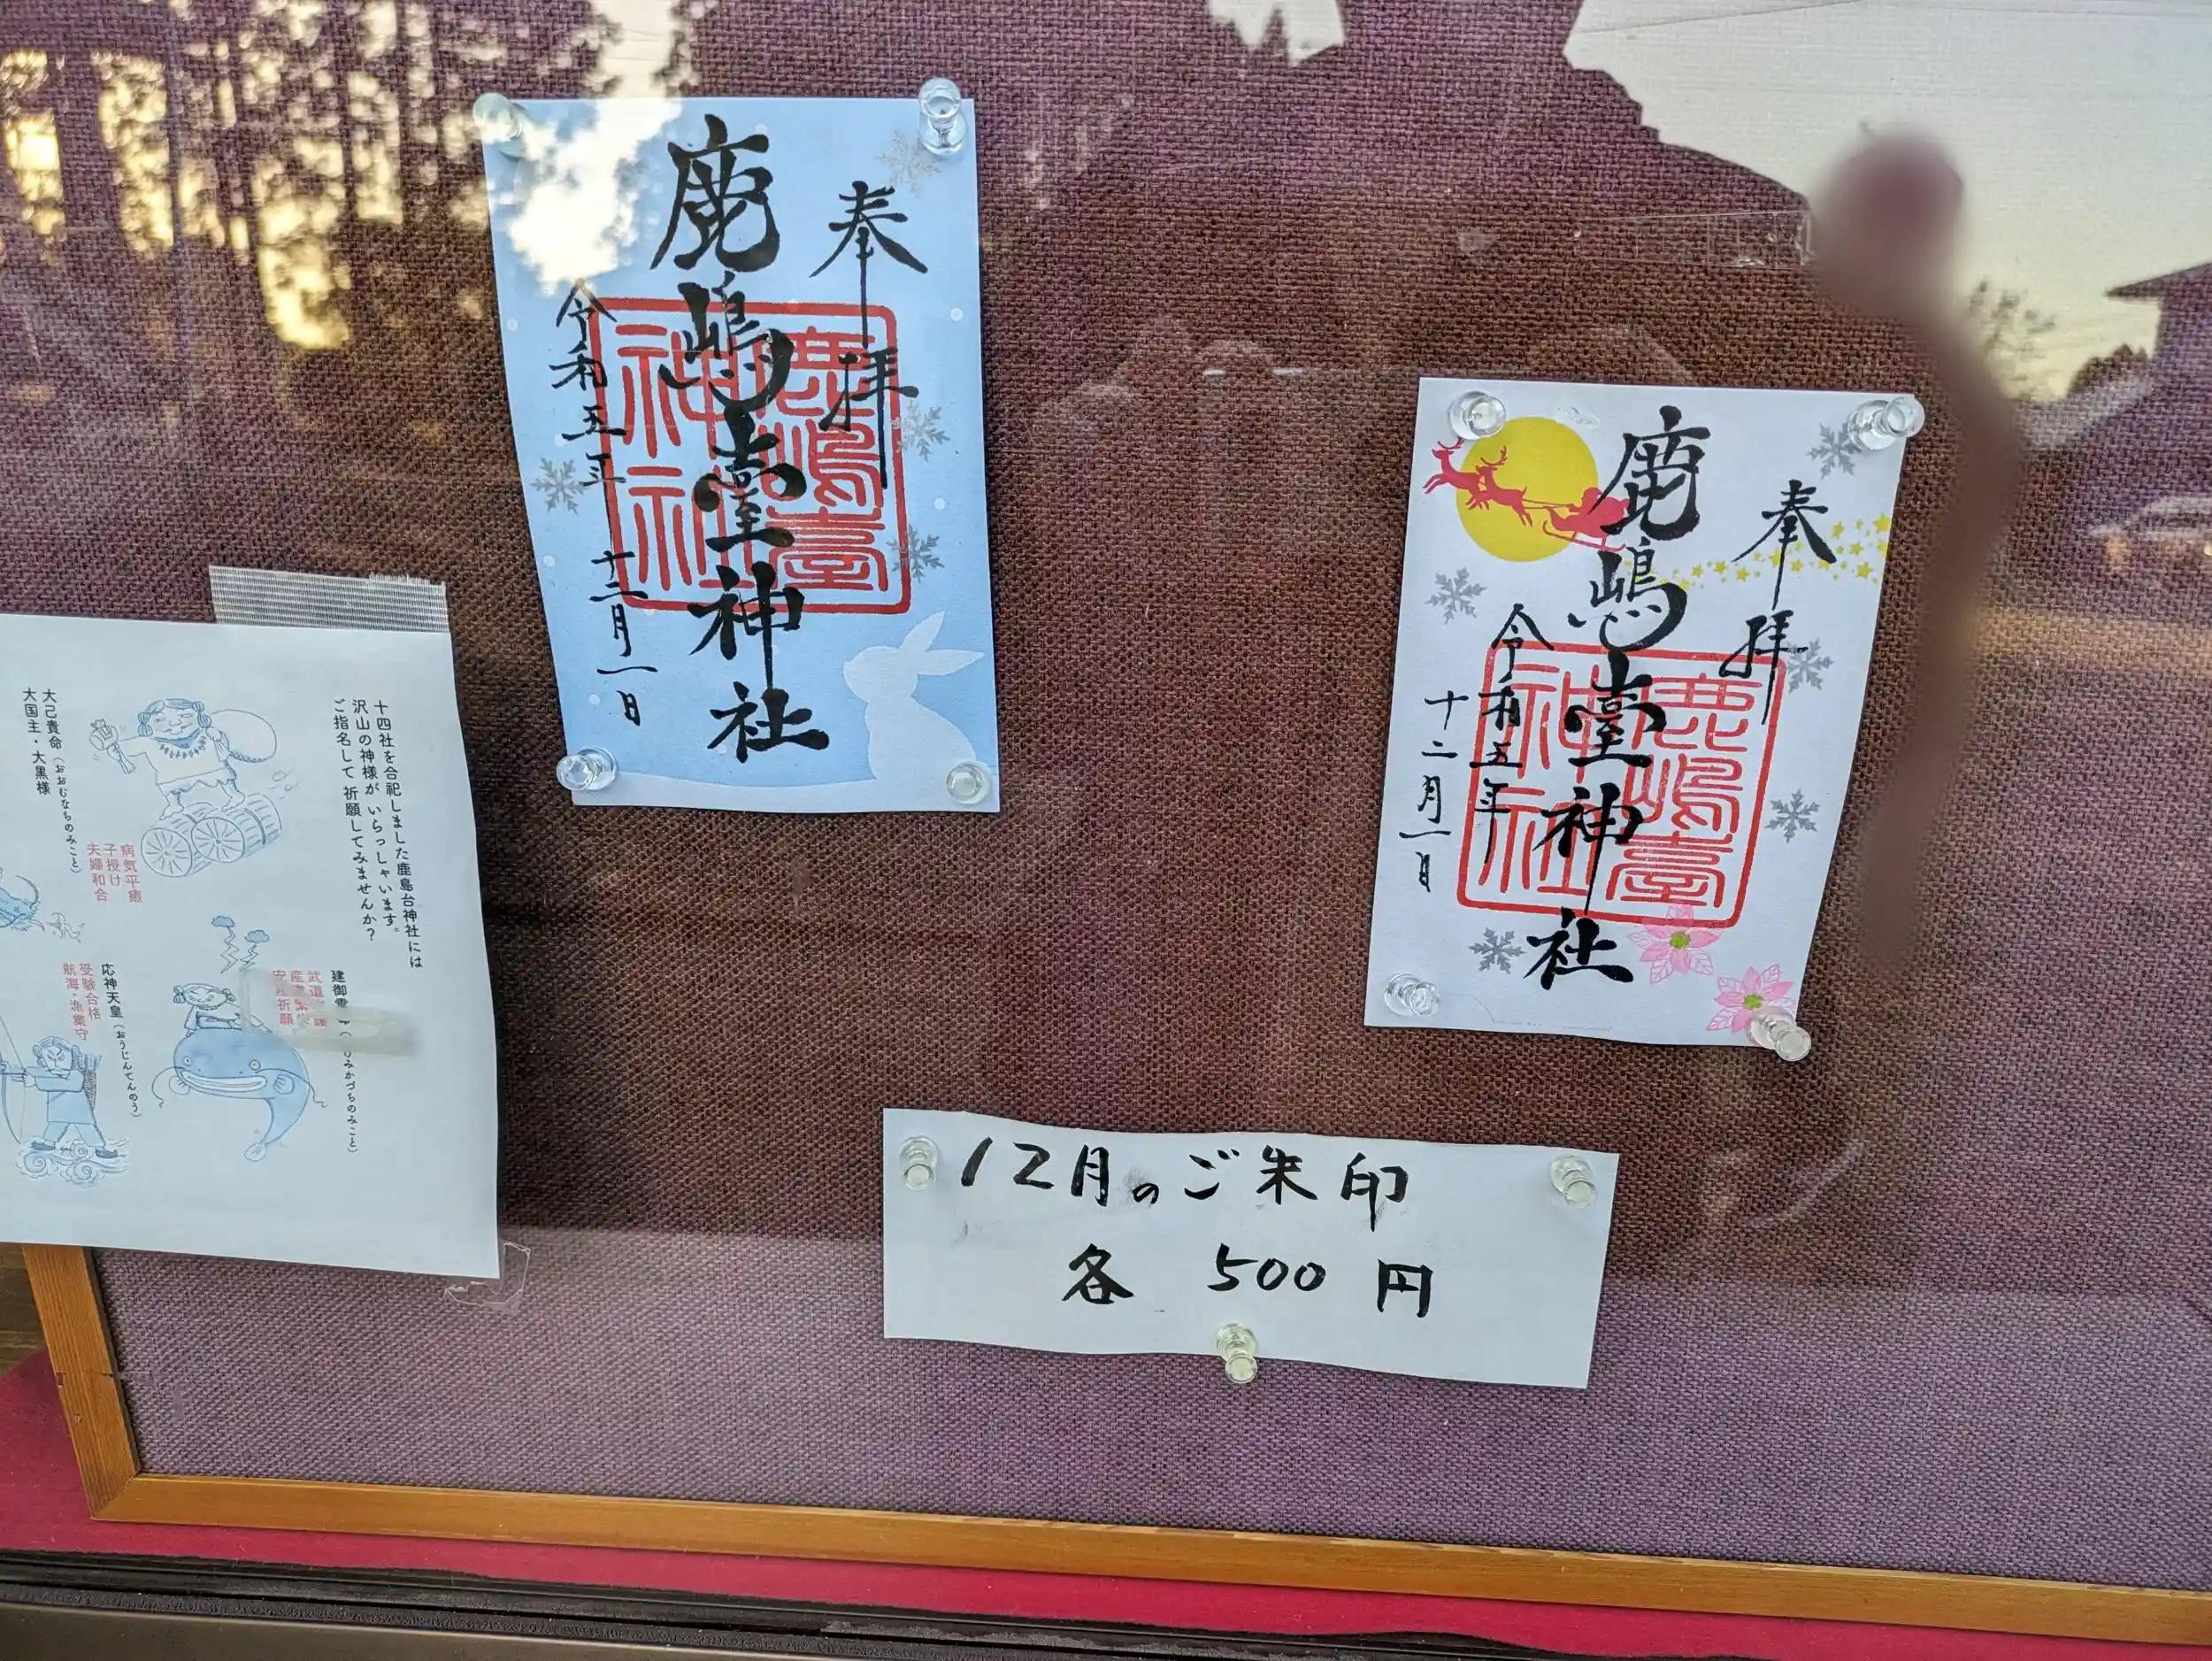 奉拝
鹿嶋臺神社
令和五年十二月一日
鹿嶋臺
神社
奉拝
鹿嶋臺神社
令和五年
十二月一日
鹿嶋臺
神社
12月のご朱印
各 500円
十四社を合祀しました鹿島台神社には
沢山の神様が いらっしゃいます。
ご指名して 祈願してみませんか?
大己貴命(おおむなちのみこと)
大国主・大黒様
病気平癒
子授け
夫婦和合
建御
みかづちのみこと)
武道
祈願
応神天皇(おうじんてんのう)
受験合格
航海・漁業守